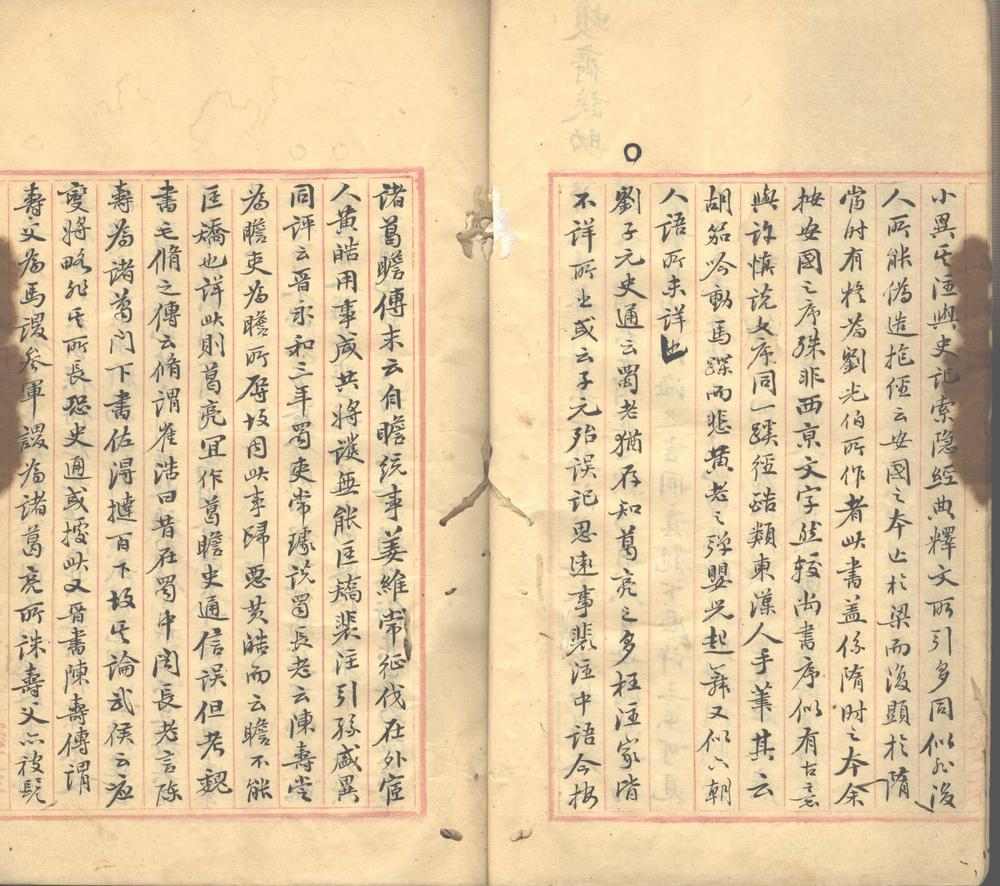 小異其注與史記索隱經典釋文所引多同似非後
人所能僞造推經云安國之本亡於梁而復顯於隋
當時有疑爲劉光伯所作者此書蓋係隋時之本余
按安國之序殊非西京文字然較尚書序似有古意
與許愼説文序同一蹊徑皓類東漢人手筆其云
胡笳吟動馬蹀而悲黃老之彈嬰兒起舞又似六朝
人語所未詳也
劉子元史通云蜀老猶存知葛亮之多枉注家皆
不詳所出或云子元殆誤記思遠事裴注中語今按
諸葛瞻傳末云自瞻統事姜維常征伐在外宦
人黃皓用事咸共將護無能匡矯裴注引孫盛異
同評云晉永和三年蜀吏常璩説蜀長老云陳壽嘗
爲瞻吏爲瞻所辱故因此事歸惡黃皓而云瞻不能
匡矯也詳此則葛亮宜作葛瞻史通信誤但考魏
書毛脩之傳云脩謂崔浩曰昔在蜀中聞長老言陳
壽爲諸葛門下書佐得撻百下故其論武侯云應
變將略非其所長恐史通或據此又晉書陳壽傳謂
壽父爲馬謖參軍謖爲諸葛亮所誅壽父亦被髡